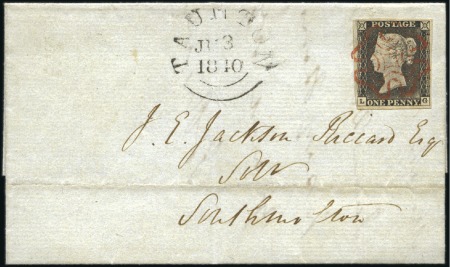 TAUNTON
JU 3
1840
POSTAGE
L G
ONE PENNY
J. E. Jackson Riccard Esq
Solr
Southmolton